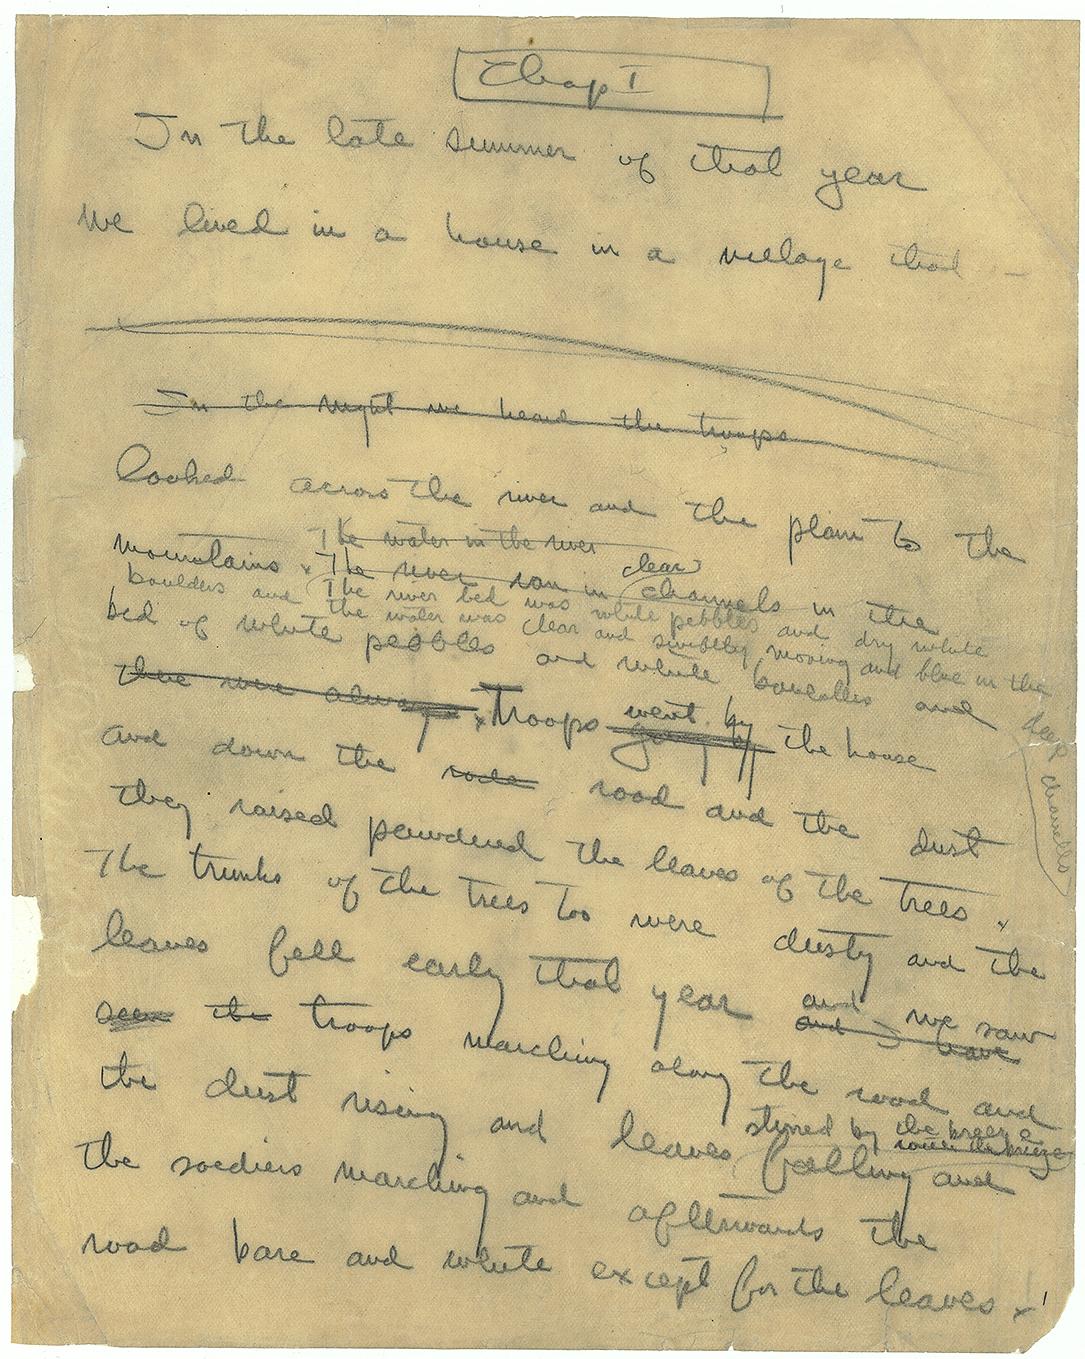 Chap I
In the late summer of that year
we lived in a house in a village that
In the night we heard the troops
looked across the river and the plain to the
The water in the river
mountains x The river ran in clear channels in the
boulders and The river bed was white pebbles and dry white
the water was clear and swiftly moving and blue in the
bed of white pebbles and white boulders and
deep channells
there were always x Troops went by the house
going by
and down the rode road and the dust
they raised powdered the leaves of the trees x
The trunks of the trees too were dusty and the
leaves fell early that year and we saw
and I have
seen the troops marching along the road and
the dust rising and leaves stirred by the breeze falling and
the soldiers marching and afterwards the
road bare and white except for the leaves x